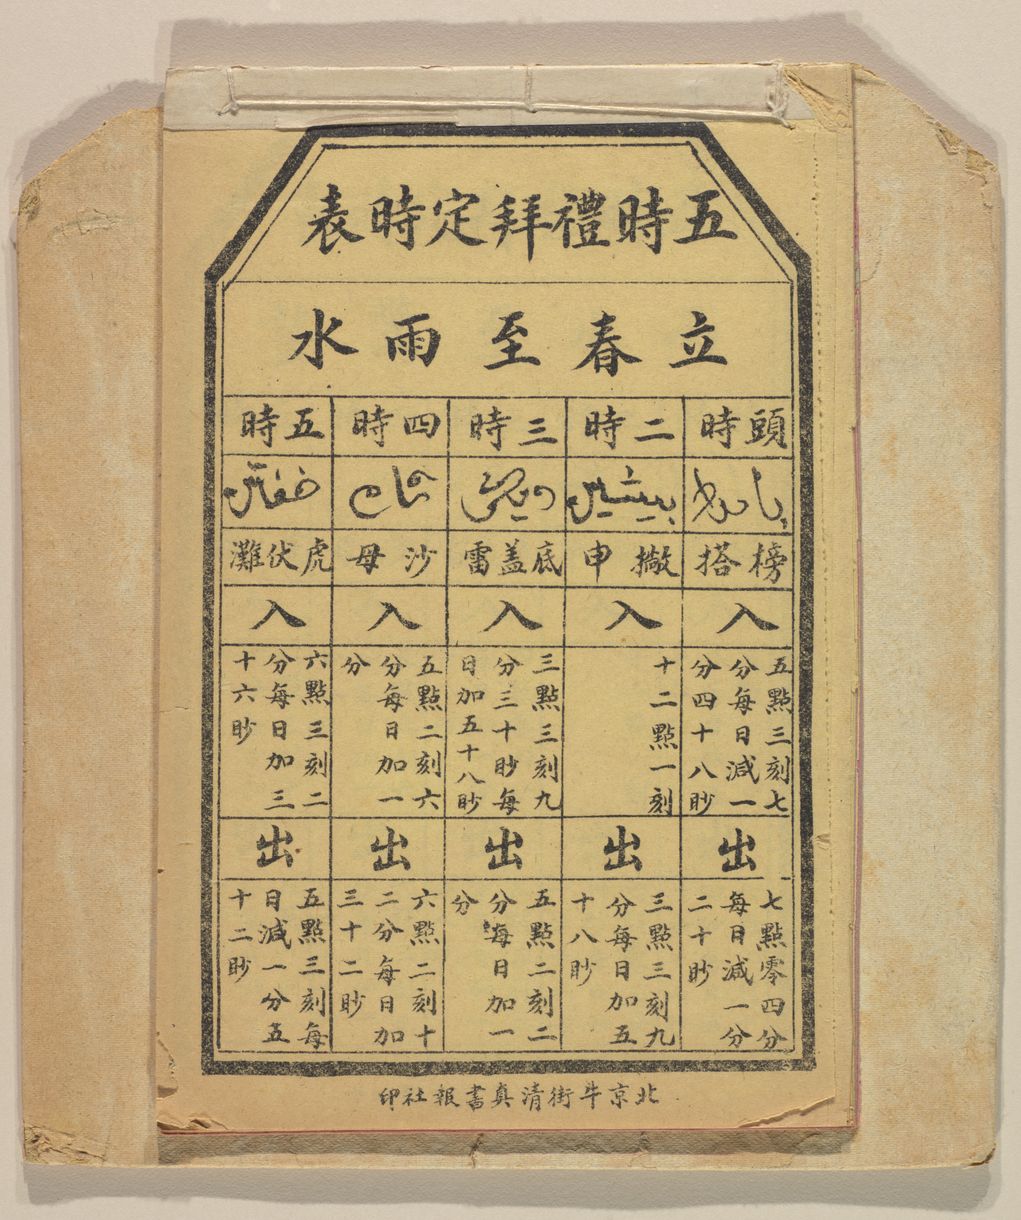 五時禮拜定時表
立春至雨水
頭時
二時
三時
四時
五時
榜搭
撇申
底盖雷
沙母
虎伏灘
入
入
入
入
入
五點三刻七
分每日減一
分四十八眇
十二點一刻
三點三刻九
分三十眇每
日加五十八眇
五點二刻六
分每日加一
分
六點三刻二
分每日加三
十六眇
出
出
出
出
出
七點零四分
每日減一分
二十眇
三點三刻九
分每日加五
十八眇
五點二刻二
分每日加一
分
六點二刻十
二分每日加
三十二眇
五點三刻每
日減一分五
十二眇
北京牛街清真書報社印